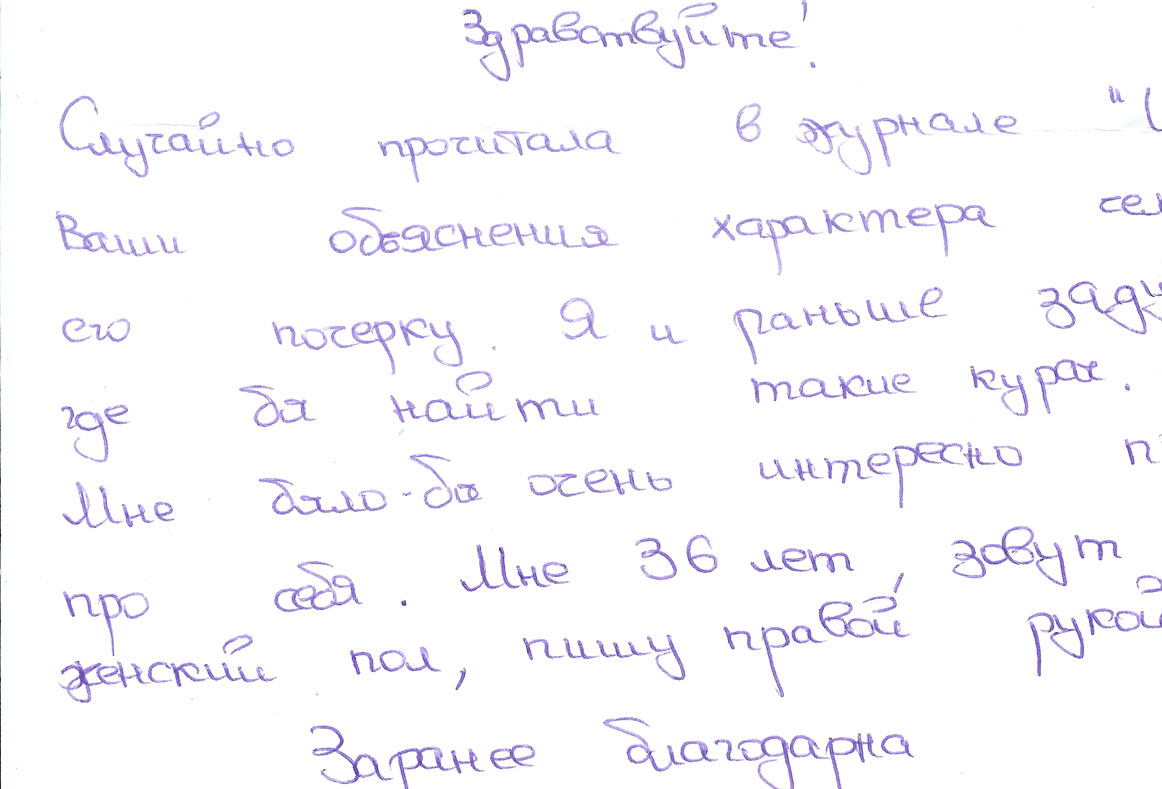 Здравствуйте!
Случайно прочитала в журнале "(
Ваши объяснения характера
его почерку. Я и раньше заду
где бы найти такие курсы.
Мне было-бы очень интересно п
про себя. Мне 36 лет, зовут
женский пол, пишу правой рукой
Заранее благодарна